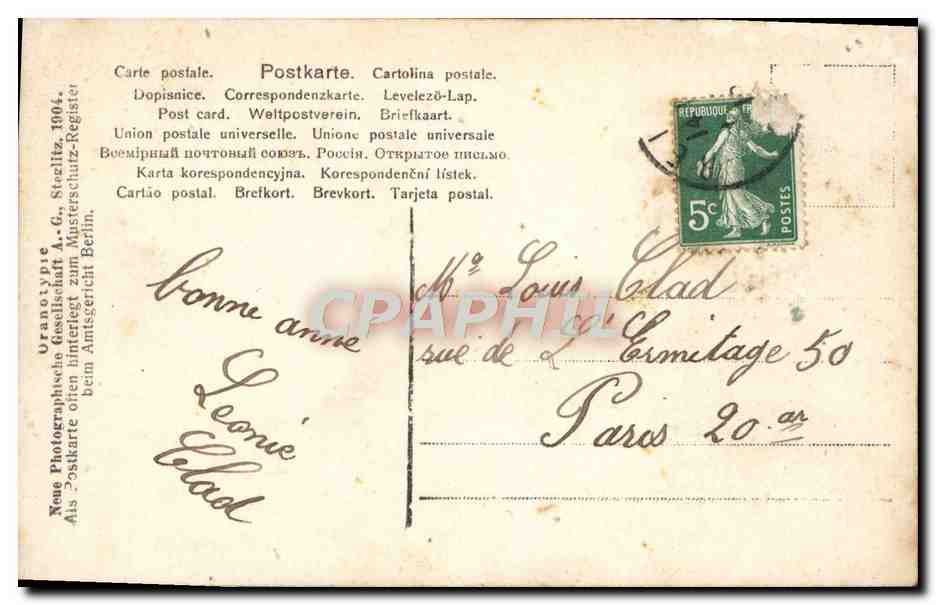 Carte postale. Postkarte. Cartolina postale.
Dopisnice. Correspondenzkarte. Levelezö-Lap.
Post card. Weltpostverein. Briefkaart.
Union postale universelle. Unione postale universale
Всемірный почтовый союзъ. Россія. Открытое письмо.
Karta korespondencyjna. Korespondenční lístek.
Cartão postal. Brefkort. Brevkort. Tarjeta postal.
Oranotypie
Neue Photographische Gesellschaft A.-G., Steglitz, 1904.
Als Postkarte offen hinterlegt zum Musterschutz-Register
beim Amtsgericht Berlin.
REPUBLIQUE FR
5c
POSTES
bonne anné
Leonie
Clad
CPAPHIL
Louis Clad
rue de L' Ermitage 50
Paris 20 ar